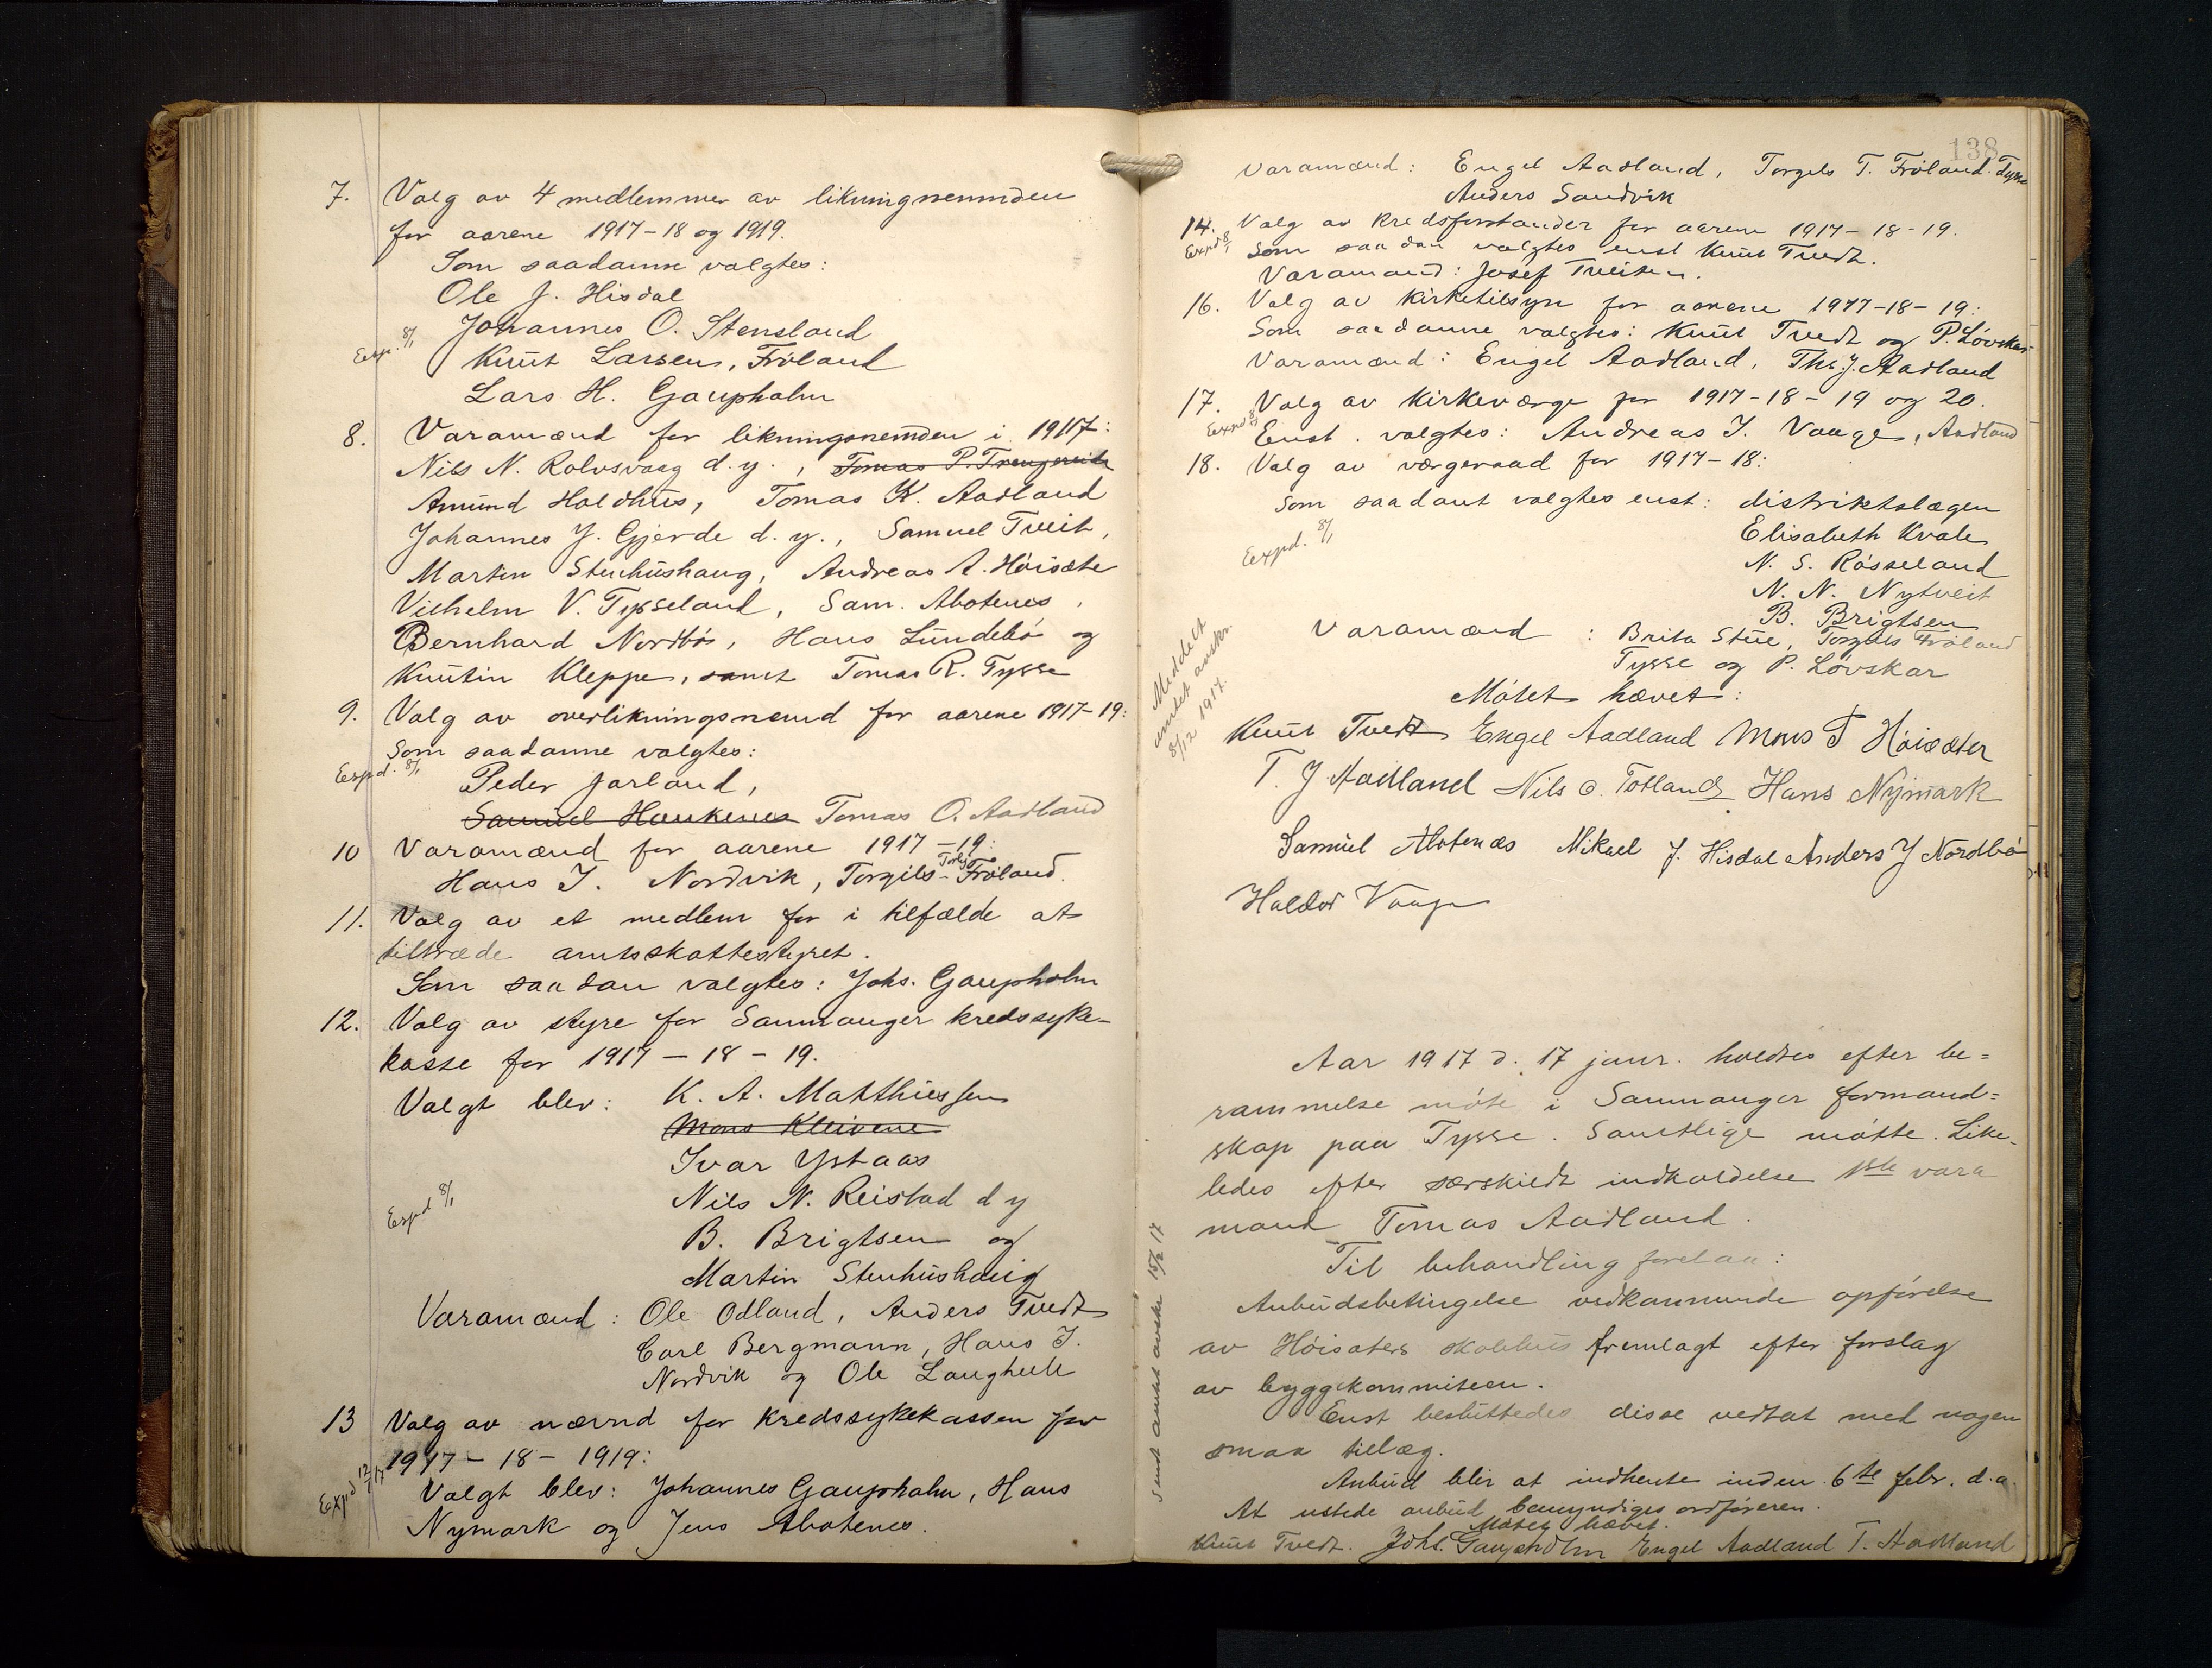 7. Valg av 4 medlemmer av likningsnemnden
for aarene 1917-18 og 1919.
Som saadanne valgtes:
Ole J. Hisdal
Johannes O. Stensland
Exp. 8/1
Knut Larsen, Fröland
Lars H. Gaupholm
8. Varamænd for likningsnemden i 1917:
Nils N. Rolvsvaag d.y., Tomas P. Trengereide
Amund Haldhus, Tomas K. Aadland
Johannes J. Gjerde d.y., Samuel Tveit,
Martin Stenhushaug, Andreas A. Höisæte
Vilhelm V. Tysseland, Sam. Abotenes,
Bernhard Nordbö, Hans Lundebö og
Knutin Kleppe, samt Tomas R. Tysse
9. Valg av overlikningsnemd for aarene 1917-19:
Som saadanne valgtes:
Expd. 8/1
Peder Jarland,
Samuel Haukenes Tomas O. Aadland
10 Varamænd for aarene 1917-19:
Torlj
Hans J. Nordvik, Torgils Fröland.
11. Valg av et medlem for i tilfælde at
tiltræde amtsskattestyret.
Som saadan valgtes: Johs. Gaupholm
12. Valg av styre for Samnanger kredssyke-
kasse for 1917-18-19.
Valgt blev: K. A. Matthiessen
Mons Kleivene
Ivar Ystaas
Nils N. Reistad d y
Expd 8/1
B. Brigtsen og
Martin Stenhushaug
Varamænd: Ole Odland, Anders Tvedt
Carl Bergmann, Hans J.
Nordvik og Ole Langhelle
13 Valg av nævnd for kredssykekassen for
1917-18-1919:
Expd 12/1 17
Valgt blev: Johannes Gaupholm, Hans
Nymark og Jens Abotenes.
138
Varamænd: Engel Aadland, Torgils T. Fröland. Tysse
Anders Sandvik
14. Valg av kredsforstander for aarene 1917-18-19.
Expd 8/1
Som saadan valgtes enst Knut Tvedt.
Varamand: Josef Tveiten.
16. Valg av kirketilsyn for aarene 1917-18-19:
Som saadanne valgtes: Knut Tvedt og P. Lövskar
Varamænd: Engel Aadland, Ths. J. Aadland
17. Valg av kirkeværge for 1917-18-19 og 20.
Expd 8/1
Enst. valgtes: Andreas J. Vaage, Aadland
18. Valg av værgeraad for 1917-18:
Som saadant valgtes enst: distriktslægen
Expd. 8/1
Elisabeth Kvale
N. S. Rösseland
N. N. Nytveit
B. Brigtsen
Varamænd: Brita Stue, Torgils Fröland
Tysse og P. Lövskar
Meddelt
amtet avskr.
8/12 1917.
Mötet hævet:
Knut Tvedt Engel Aadland Mons T Höisæter
T. J. Aadland Nils O. Totland Hans Nymark
Samuel Abotnes Mikael J. Hisdal Anders J Nordbö
Haldor Vaage
Aar 1917 d. 17 janr. holdtes efter be=
rammelse möte i Samnanger formand=
skap paa Tysse. Samtlige mötte. Like-
ledes efter særskildt indkaldelse 1ste vara
mand Tomas Aadland.
Til behandling forelaa:
Anbudsbetingelse vedkommende opförelse
av Höisæters skolehus fremlagt efter forslag
av byggekommiteen.
Enst besluttedes disse vedtat med nogen
smaa tillæg.
Anbud blir at indhente inden 6te febr. d.a.
At utstede anbud bemyndiges ordföreren.
Mötet hævet.
Knut Tvedt. Johs. Gaupholm Engel Aadland T. Aadland
Sendt amtet avskr 15/2 17